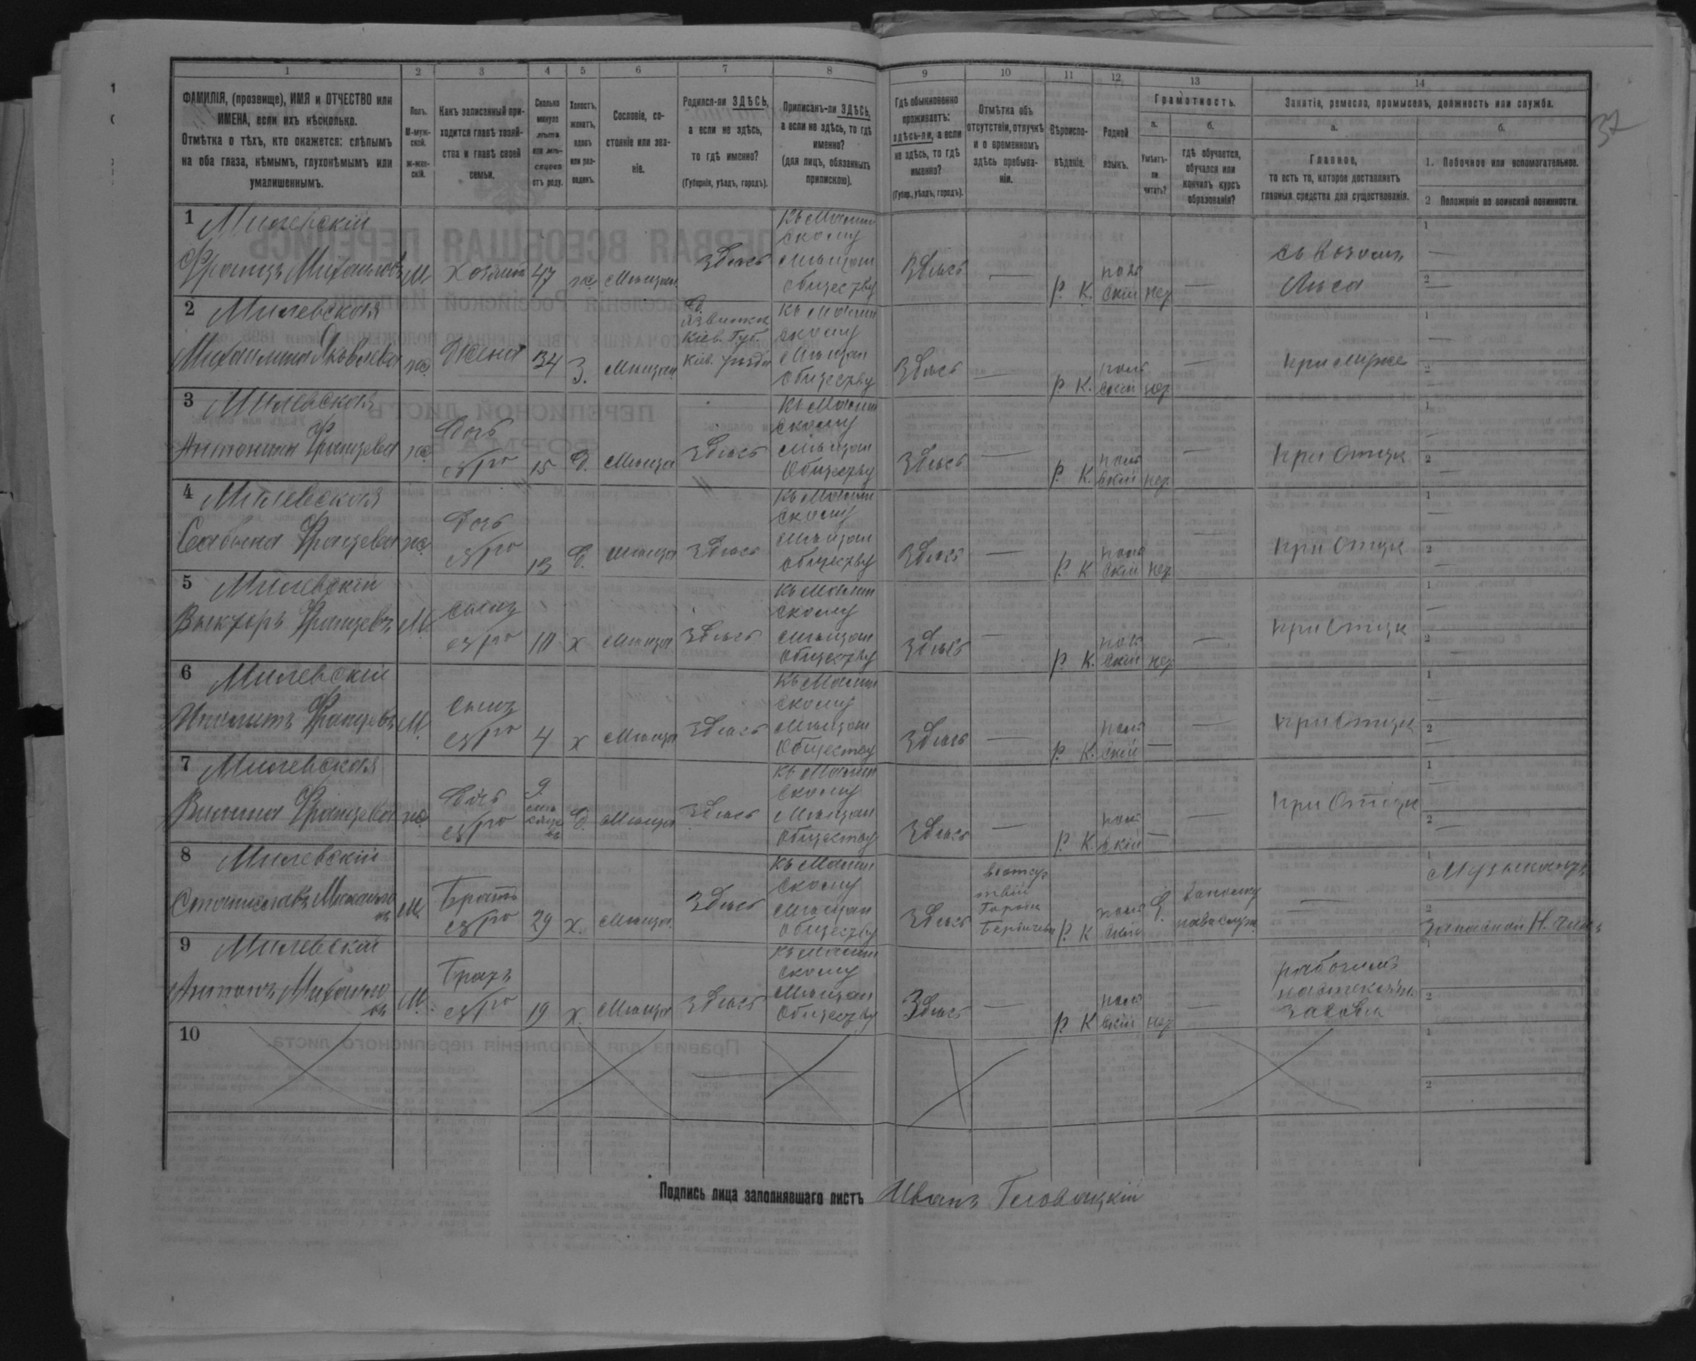 37
1 2 3 4 5 6 7 8 9 10 11 12 13 14
ФАМИЛІЯ, (прозвище), ИМЯ и ОТЧЕСТВО или
ИМЕНА, если ихъ нѣсколько.
Отмѣтка о тѣхъ, кто окажется: слѣпымъ
на оба глаза, нѣмымъ, глухонѣмымъ или
умалишеннымъ.
Полъ.
М-муж-
ской.
Ж-жен-
скій.
Какъ записанный при-
ходится главѣ хозяй-
ства и главѣ своей
семьи.
Сколько
минуло
лѣтъ
или мѣ-
сяцевъ
отъ роду.
Холостъ,
женатъ,
вдовъ
или раз-
веденъ.
Сословіе, со-
стояніе или зва-
ніе.
Родился-ли ЗДѢСЬ,
а если не здѣсь,
то гдѣ именно?
(Губернія, уѣздъ, городъ).
Приписанъ-ли ЗДѢСЬ,
а если не здѣсь, то гдѣ
именно?
(для лицъ, обязанныхъ
припискою).
Гдѣ обыкновенно
проживаетъ:
здѣсь-ли, а если
не здѣсь, то гдѣ
именно?
(Губер., уѣздъ, городъ).
Отмѣтка объ
отсутствіи, отлучкѣ
и о временномъ
здѣсь пребыва-
ніи.
Вѣроиспо-
вѣданіе.
Родной
языкъ.
Грамотность.
а.
Умѣетъ-
ли
читать?
б.
гдѣ обучается,
обучался или
кончилъ курсъ
образованія?
Занятіе, ремесло, промыселъ, должность или служба.
а.
Главное,
то есть то, которое доставляетъ
главныя средства для существованія.
б.
1. Побочное или вспомогательное.
2 Положеніе по воинской повинности.
1 Милевскій
Францъ Михайловъ М. Хозяинъ 47 ж. Мѣщан. Здѣсь
Къ Малин
скому
мѣщан
обществу
Здѣсь — Р. К. поль
скій нет —
Лѣса
1 —
2 —
2 Милевская
Михаилина Яковлева ж. Жена 34 З. Мѣщан.
Кіев. Губ.
Кіев. уѣзда
Къ Малин
скому
Мѣщан
Обществу
Здѣсь — Р. К. поль
скій нет —
При мужѣ
3 Милевская
Антонина Францева ж. Дочь
его 15 Д. Мѣщан Здѣсь
Къ Малин
скому
мѣщан
Обществу
Здѣсь — Р. К. поль
скій нет —
При Отцѣ
4 Милевская
Францева ж. Дочь
его 13 Д. мѣщан Здѣсь
Къ Малин
скому
мѣщан
обществу
Здѣсь — Р. К поль
скій нет —
При Отцѣ
5 Милевскій
Францевъ М. Сынъ
его 10 х Мѣщан Здѣсь
Къ Малин
скому
мѣщан
обществу
Здѣсь — Р. К. поль
скій нет —
При Отцѣ
6 Милевскій
Францевъ М. Сынъ
его 4 х Мѣщан Здѣсь
Къ Малин
скому
Мѣщан
Обществу
Здѣсь — Р. К. поль
скій — —
При Отцѣ
7 Милевская
Францева ж. Дочь
его 9
мѣ
сяце
въ Д. Мѣщан Здѣсь
Къ Малин
скому
Мѣщан
Обществу
Здѣсь — Р. К поль
скій —
При Отцѣ
8 Милевскій
Станиславъ Михайло
въ М. Братъ
его 29 х. Мѣщан. Здѣсь
Къ Малин
скому
Мѣщан
Обществу
Здѣсь
въ отсут
ствіи
Бердичевъ
Р. К поль
скій —
Музыкантъ
Запасной Н. чинъ
9 Милевскій
Антонъ Михайло
въ М. Братъ
его 19 х. Мѣщан Здѣсь
Къ Малин
скому
Мѣщан
Обществу
Здѣсь — Р. К поль
скій нет —
рабочимъ
завода
10
Подпись лица заполнявшаго листъ Иванъ Головацкій